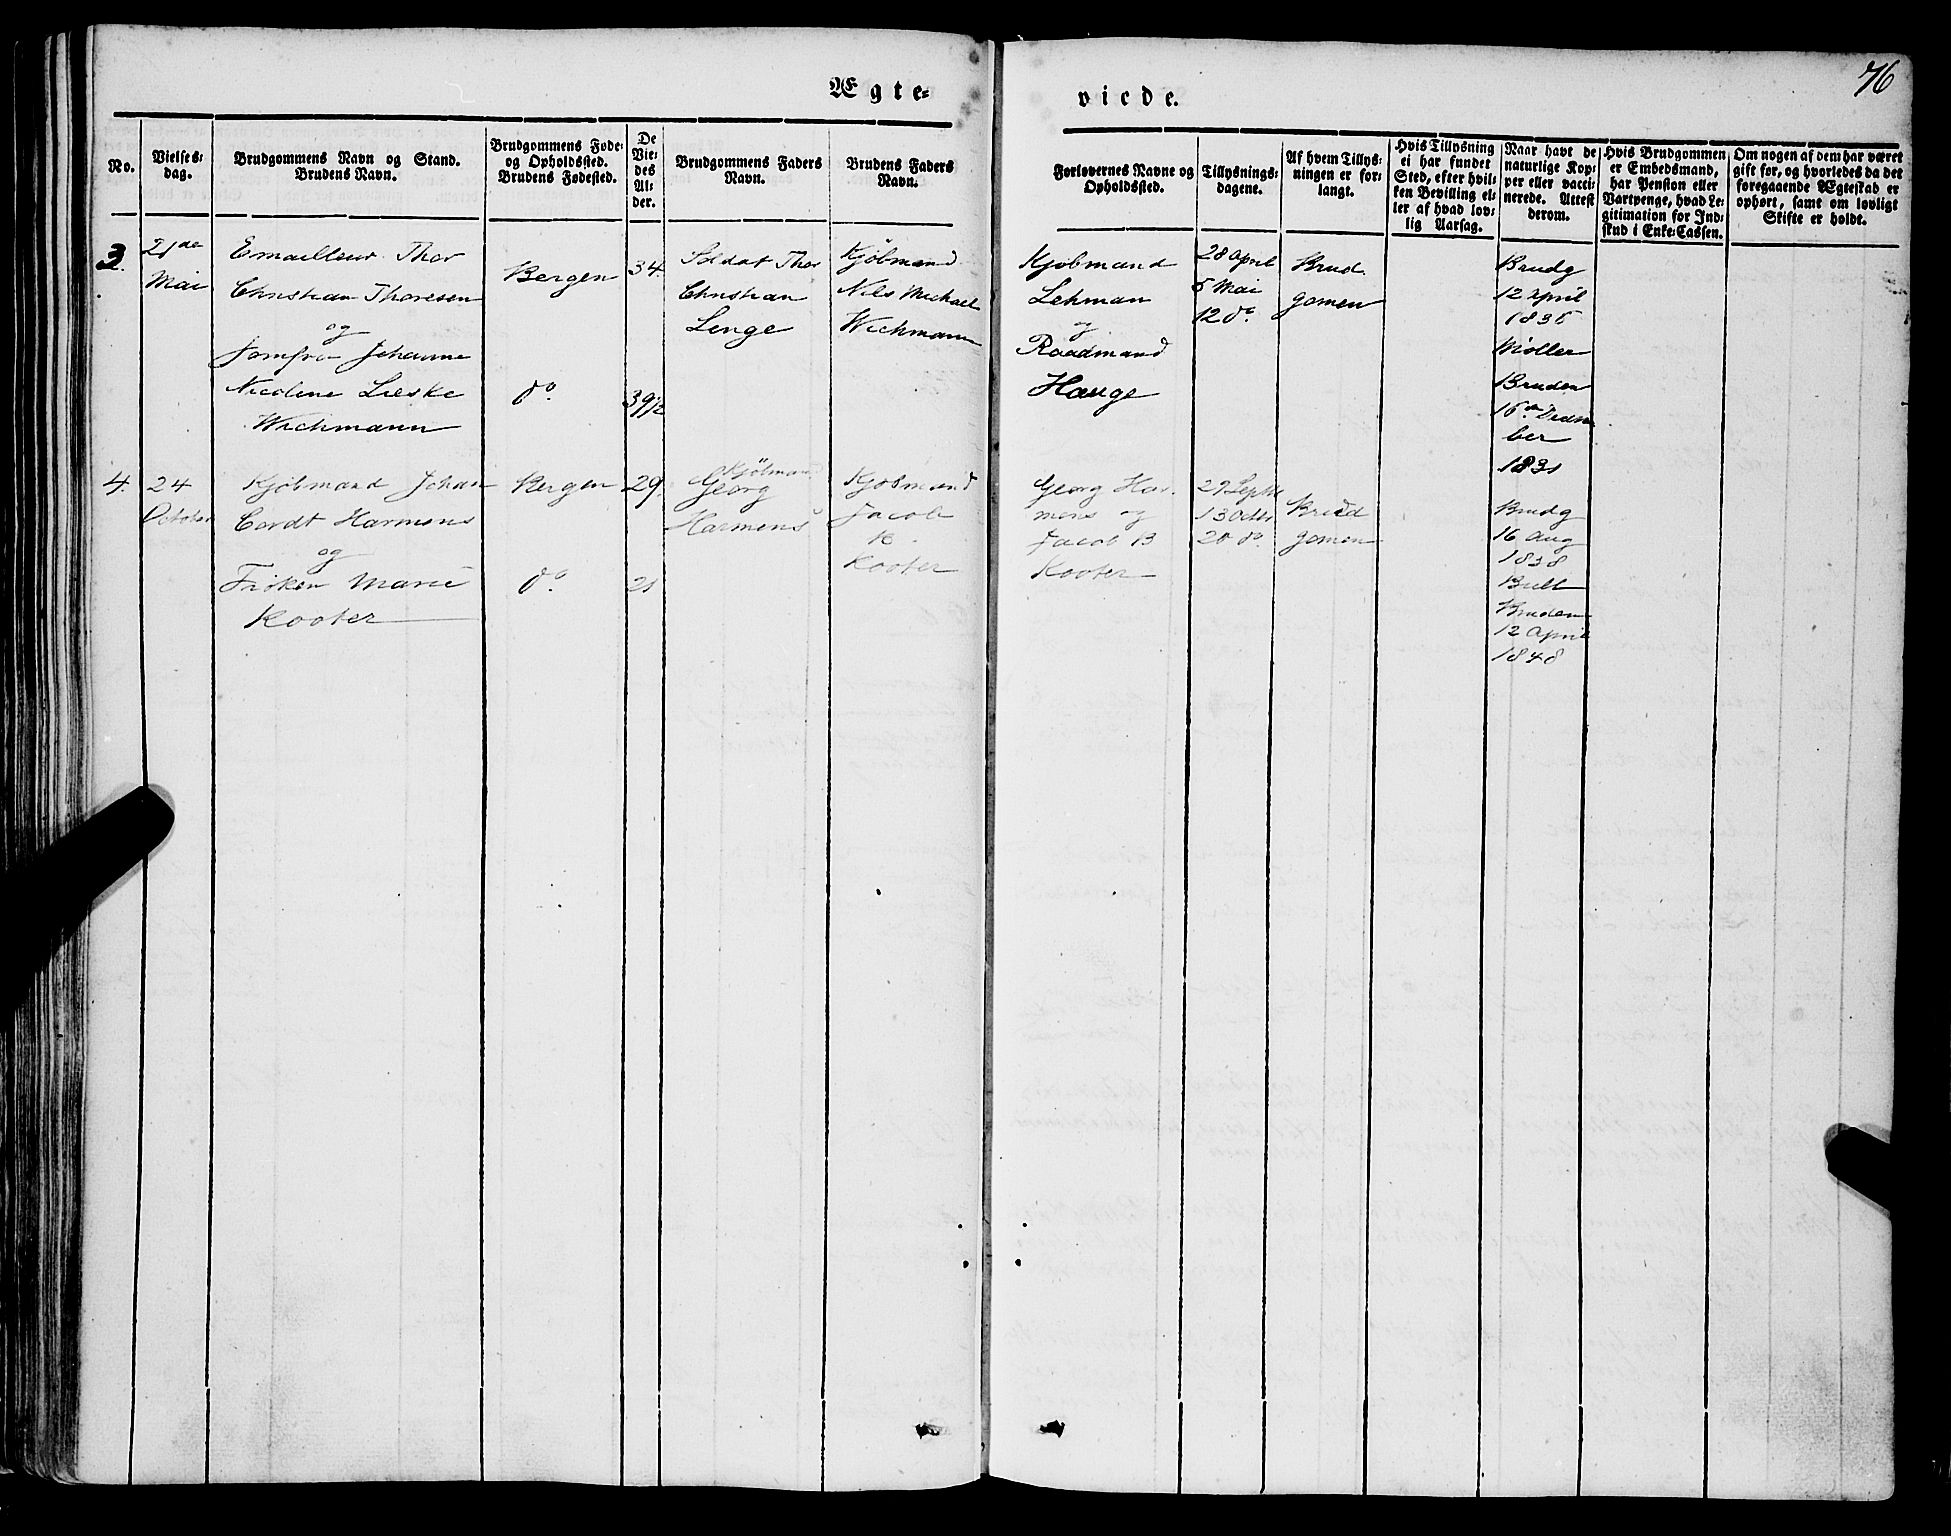 76
Ægte-
viede.
No.
Vielses-
dag.
Brudgommens Navn og Stand.
Brudens Navn.
Brudgommens Føde-
og Opholdssted.
Brudens Fødested.
De
Vie-
des
Al-
der.
Brudgommens Faders
Navn.
Brudens Faders
Navn.
Forlovernes Navne og
Opholdssted.
Tillysnings-
dagene.
Af hvem Tillys-
ningen er for-
langt.
Hvis Tillysning
ei har fundet
Sted, efter hvil-
ken Bevilling el-
ler af hvad lov-
lig Aarsag.
Naar havt de
naturlige Kop-
per eller vacci-
nerede. Attest
derom.
Hvis Brudgommen
er Embedsmand,
har Pension eller
Vartpenge, hvad Le-
gitimation for Ind-
skud i Enke-Cassen.
Om nogen af dem har været
gift før, og hvorledes da det
foregaaende Ægteskab er
ophørt, samt om lovligt
Skifte er holdt.
3.
21de
Mai
Emailleur Thor
Christian Thoresen
og
Jomfru Johanne
Nicoline Lieske
Wichmann
Bergen
do
34
39 1/2
Soldat Thor
Christian
Lenge
Kjöbmand
Nils Michael
Wichmann
Kjøbmand
Lehman
og
Raadmand
Hauge
28 April
5 Mai
12 do.
Brud
gomen
Brudg
12 April
1835
Møller
Bruden
16de Decem
ber
1831
4.
24
October
Kjöbmand Johan
Cordt Harmens
og
Frøken Marie
Kooter
Bergen
do
29.
21
Kjöbmand
Georg
Harmens
Kjøbmand
Jacob
B.
Kooter
Georg Har
mens og
Jacob B
Kooter
29 Septbr
13 Octbr
20 do.
Brud
gomen
Brudg
16 Aug
1838
Bull
Bruden
12 April
1848